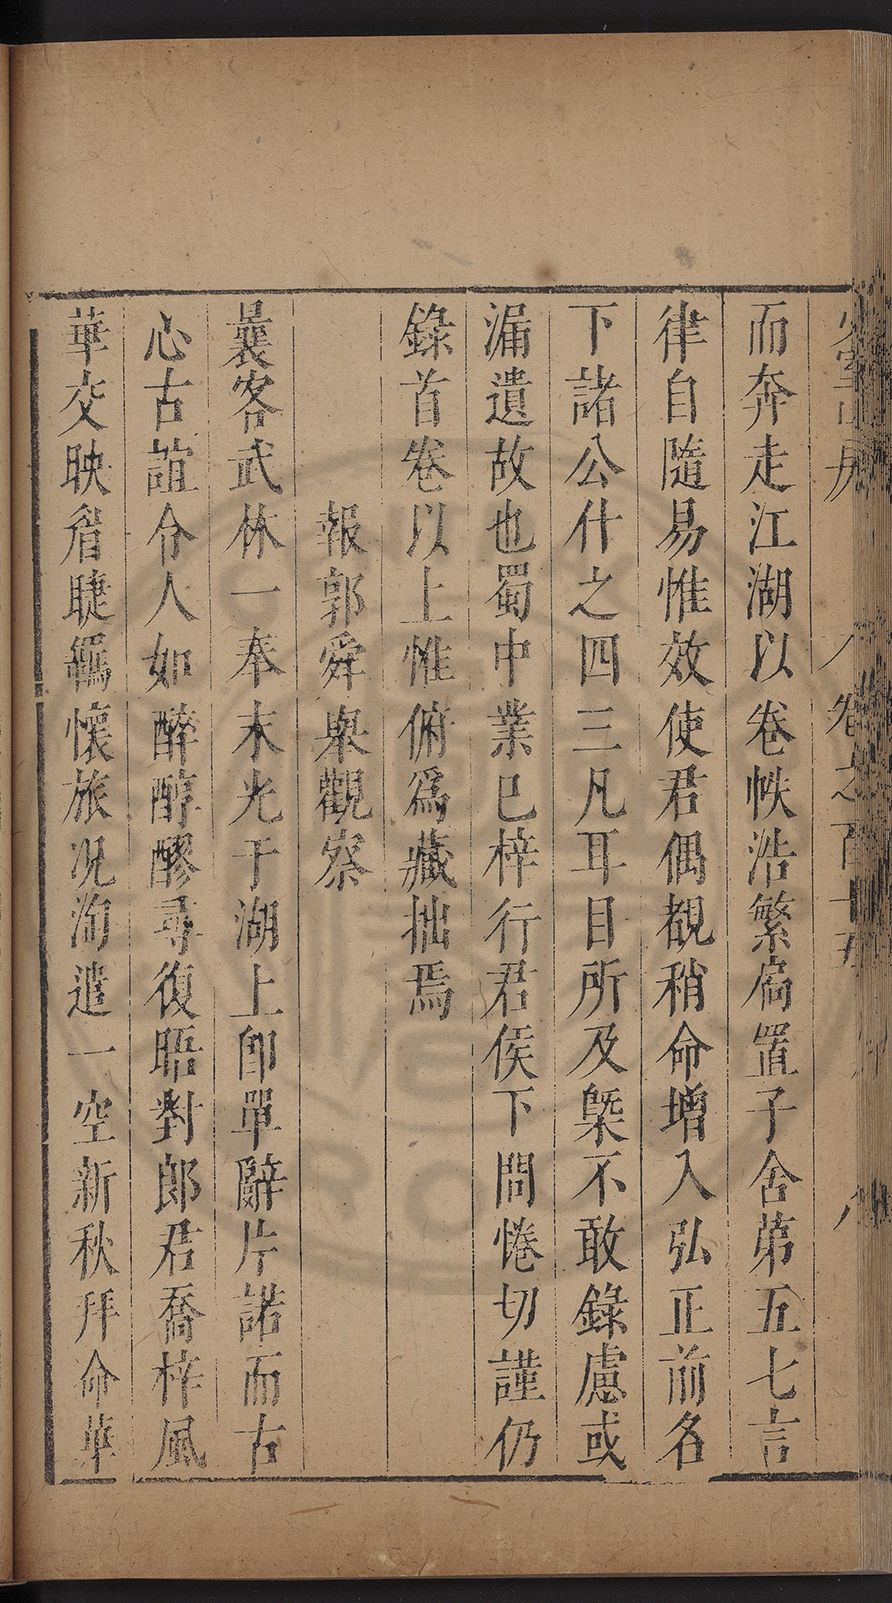 少室山房　卷之百十五　八
而奔走江湖以卷帙浩繁扃置子舍第五七言
律自隨易惟效使君偶覩稍命增入弘正前名
下諸公什之四三凡耳目所及槩不敢錄慮或
漏遺故也蜀中業已梓行君侯下問惓切謹仍
錄首卷以上惟俯爲藏拙焉
報郭舜舉觀察
曩客武林一奉末光于湖上卽單辭片諾而古
心古誼令人如醉醇醪尋復晤對郎君喬梓風
華交映眉睫羈懷旅况洵遣一空新秋拜命華